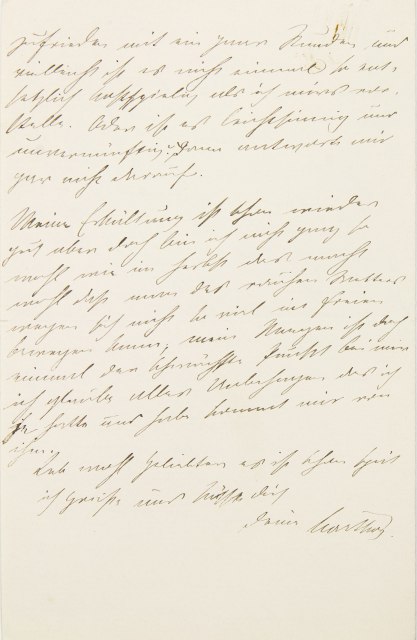 zufrieden mit ein paar Stunden und
vielleicht ist es nicht einmal so ent-
setzlich kostspielig als ich mirs vor-
stelle. Oder ist es leichtsinnig und
unvernünftig? Dann antworte mir
gar nicht darauf.
Meine Erkältung ist schon wieder
gut aber doch bin ich nicht ganz so
wohl wie im Herbst das macht
wohl dass man des rauhen Wetters
wegen sich nicht so viel im Freien
bewegen kann, mein Magen ist doch
einmal der schwächste Punkt bei mir
ich glaube alles Unbehagen das ich
je hatte und habe kommt mir von
ihm.
Leb wohl Geliebter es ist schon spät
ich grüße und küsse dich
Deine Martha.